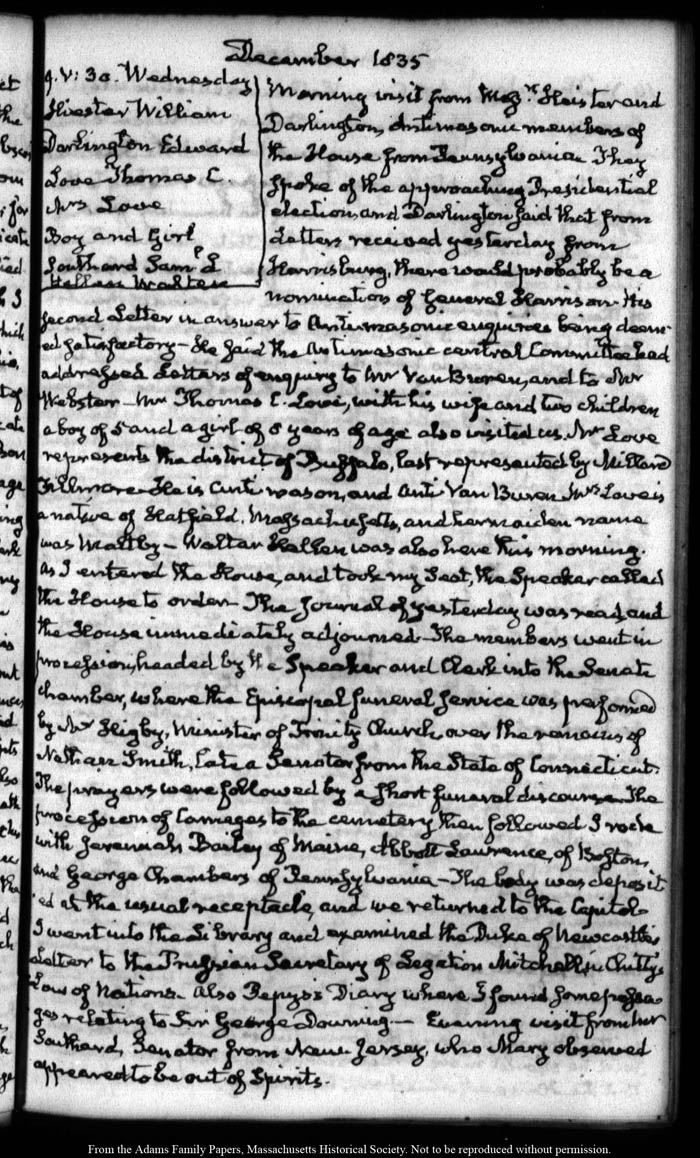 December 1835
9. V: 30. Wednesday
Hiester William
Darlington Edward
Love Thomas C.
Mrs Love
Boy and Girl
Southard Saml L
Hellen Walter
Morning visit from Messrs. Heister and
Darlington, Antimasonic members of
the House from Pennsylvania. They
spoke of the approaching Presidential
election, and Darlington said that from
Letters received yesterday from
Harrisburg, there would probably be a
nomination of General Harrison. His
second Letter in answer to Antimasonic enquiries being deem-
ed satisfactory— He said the Antimasonic central Committee had
addressed Letters of enquiry to Mr Van Buren, and to Mr
Webster— Mr Thomas C. Love, with his wife and two children
a boy of 5 and a girl of 8 years of age also visited us. Mr Love
represents the district of Buffalo, last represented by Millard
Fillmore— He is anti mason, and anti Van Buren. Mrs Love is
a native of Hatfield, Massachusetts, and her maiden name
was Maltby— Walter Hellen was also here this morning.
As I entered the House, and took my Seat, the Speaker called
the House to order— The Journal of yesterday was read, and
the House immediately adjourned— The members went in
procession, headed by the Speaker and Clerk into the Senate
chamber, where the Episcopal funeral service was performed
by Mr Higby, Minister of Trinity Church over the remains of
Nathan Smith, late a Senator from the State of Connecticut.
The prayers were followed by a short funeral discourse. The
procession of Carriages to the cemetery then followed I rode
with Jeremiah Bailey of Maine, Abbott Lawrence, of Boston,
and George Chambers of Pennsylvania— The body was deposit
ed at the usual receptacle, and we returned to the Capitol—
I went into the Library and examined the Duke of Newcastle's
Letter to the Prussian Secretary of Legation Mitchell in Chitty's
Law of Nations— Also Pepys's Diary where I found some passa-
ges relating to Sir George Downing— Evening visit from Mr
Southard, Senator from New Jersey, who Mary observed
appeared to be out of Spirits.
From the Adams Family Papers, Massachusetts Historical Society. Not to be reproduced without permission.